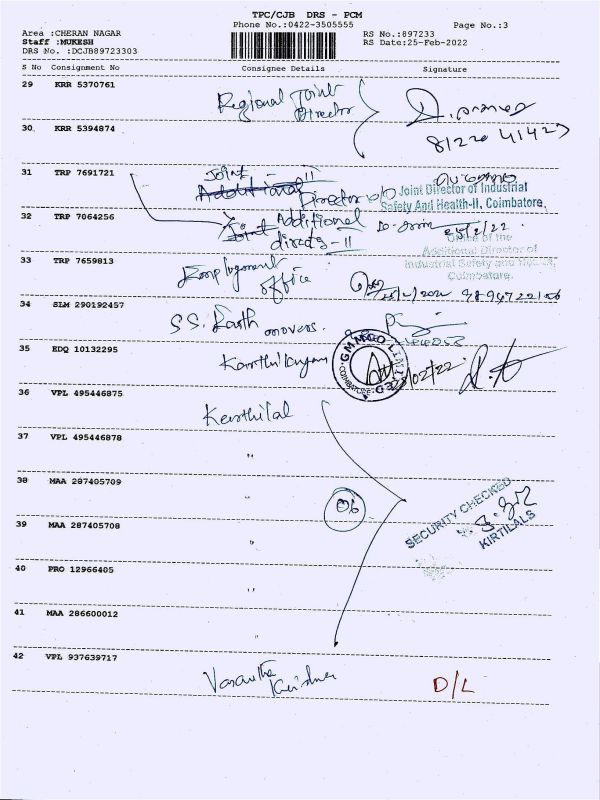 TPC/CJB DRS - PCM
Phone No.:0422-3505555
Page No.:3
Area :CHERAN NAGAR
Staff :MUKESH
DRS No. :DCJB89723303
RS No.:897233
RS Date:25-Feb-2022
S No Consignment No Consignee Details Signature
29 KRR 5370761
Regional Joint
Director
30 KRR 5394874
31 TRP 7691721
Joint II
Additional Director
Joint Director of Industrial
Safety And Health-II, Coimbatore.
32 TRP 7064256
Joint Additional
director-II
Office of the
Additional Director of
Industrial Safety and
Coimbatore.
33 TRP 7659813
Employment
office
34 SLM 290192457
S.S. Earth movers.
35 EDQ 10132295
GMMCO LIMITED
COIMBATORE
36 VPL 495446875
Keerthilal
37 VPL 495446878
"
38 MAA 287405709
"
06
SECURITY CHECKED
KIRTILALS
39 MAA 287405708
"
40 PRO 12966405
"
41 MAA 286600012
"
42 VPL 937639717
Vasantha
D/L